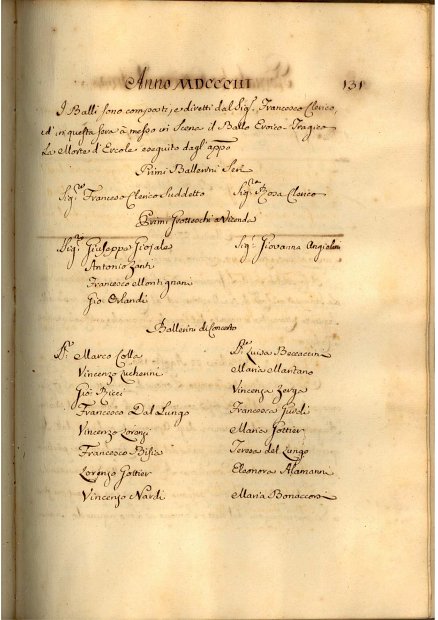 Anno MDCCCIII 131
I Balli sono composti, e diretti dal Sig.r Francesco Clerico,
ed in questa sera à messo in Scena il Ballo Eroico-Tragico
La Morte d'Ercole eseguito dagl'app.o
Primi Ballerini Serj
Sig.r Francesco Clerico Suddetto Sig.ra Rosa Clerico
Primi Grotteschi a Vicenda
Sig.ri Giuseppe Giojale Sig.ra Giovanna Angiolini
Antonio
Francesco Montignani
Gio Orlandi
Ballerini di Concerto
S.ri Marco Colla S.re Luisa Beccaccini
Vincenzo Cuchenni Maria Marzano
Gio: Ricci Vincenza Zerga
Francesco Dal Lungo Francesca
Vincenzo Lorenzi Maria Gottier
Francesco Bisia Teresa del Lungo
Lorenzo Gottier Eleonora Alamanni
Vincenzo Nardi Maria Bonaccorsi